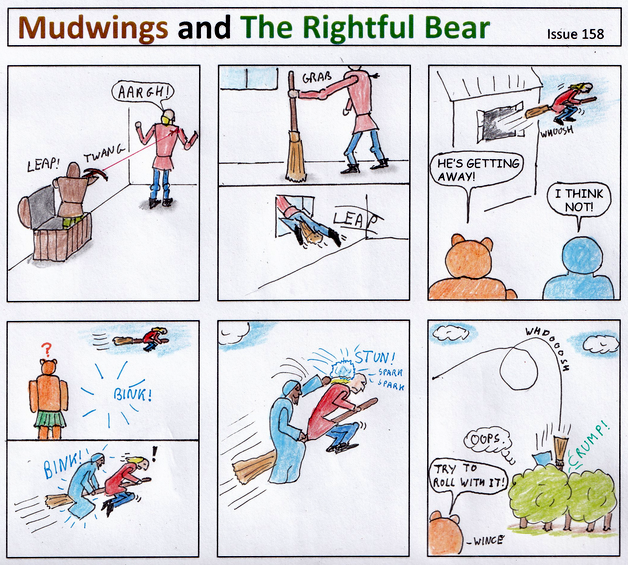 Mudwings and The Rightful Bear
Issue 158
AARGH!
LEAP!
TWANG
GRAB
LEAP
WHOOSH
HE'S GETTING
AWAY!
I THINK
NOT!
?
BINK!
BINK!
!
STUN!
SPARK
SPARK
WHOOOOSH
OOPS.
CRUMP!
TRY TO
ROLL WITH IT!
-WINCE